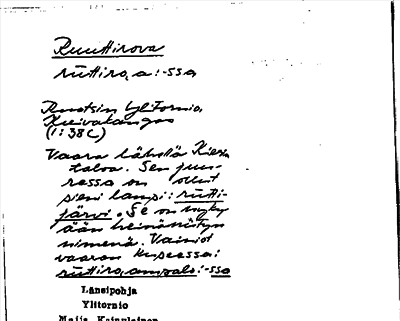 Ruuttirova
rüttiro, a: -ssa
Ruotsin Ylitornio,
Kuivakangas
(1:38C)
Vaara lähellä Kieri
taloa. Sen juu-
ressa on ollut
pieni lampi: rütti-
järvi. Se on nyky
ään heinäniityn
nimenä. Vainiot
vaaran kupeessa:
rüttiro, an : -ssa
Länsipohja
Ylitornio
Maija